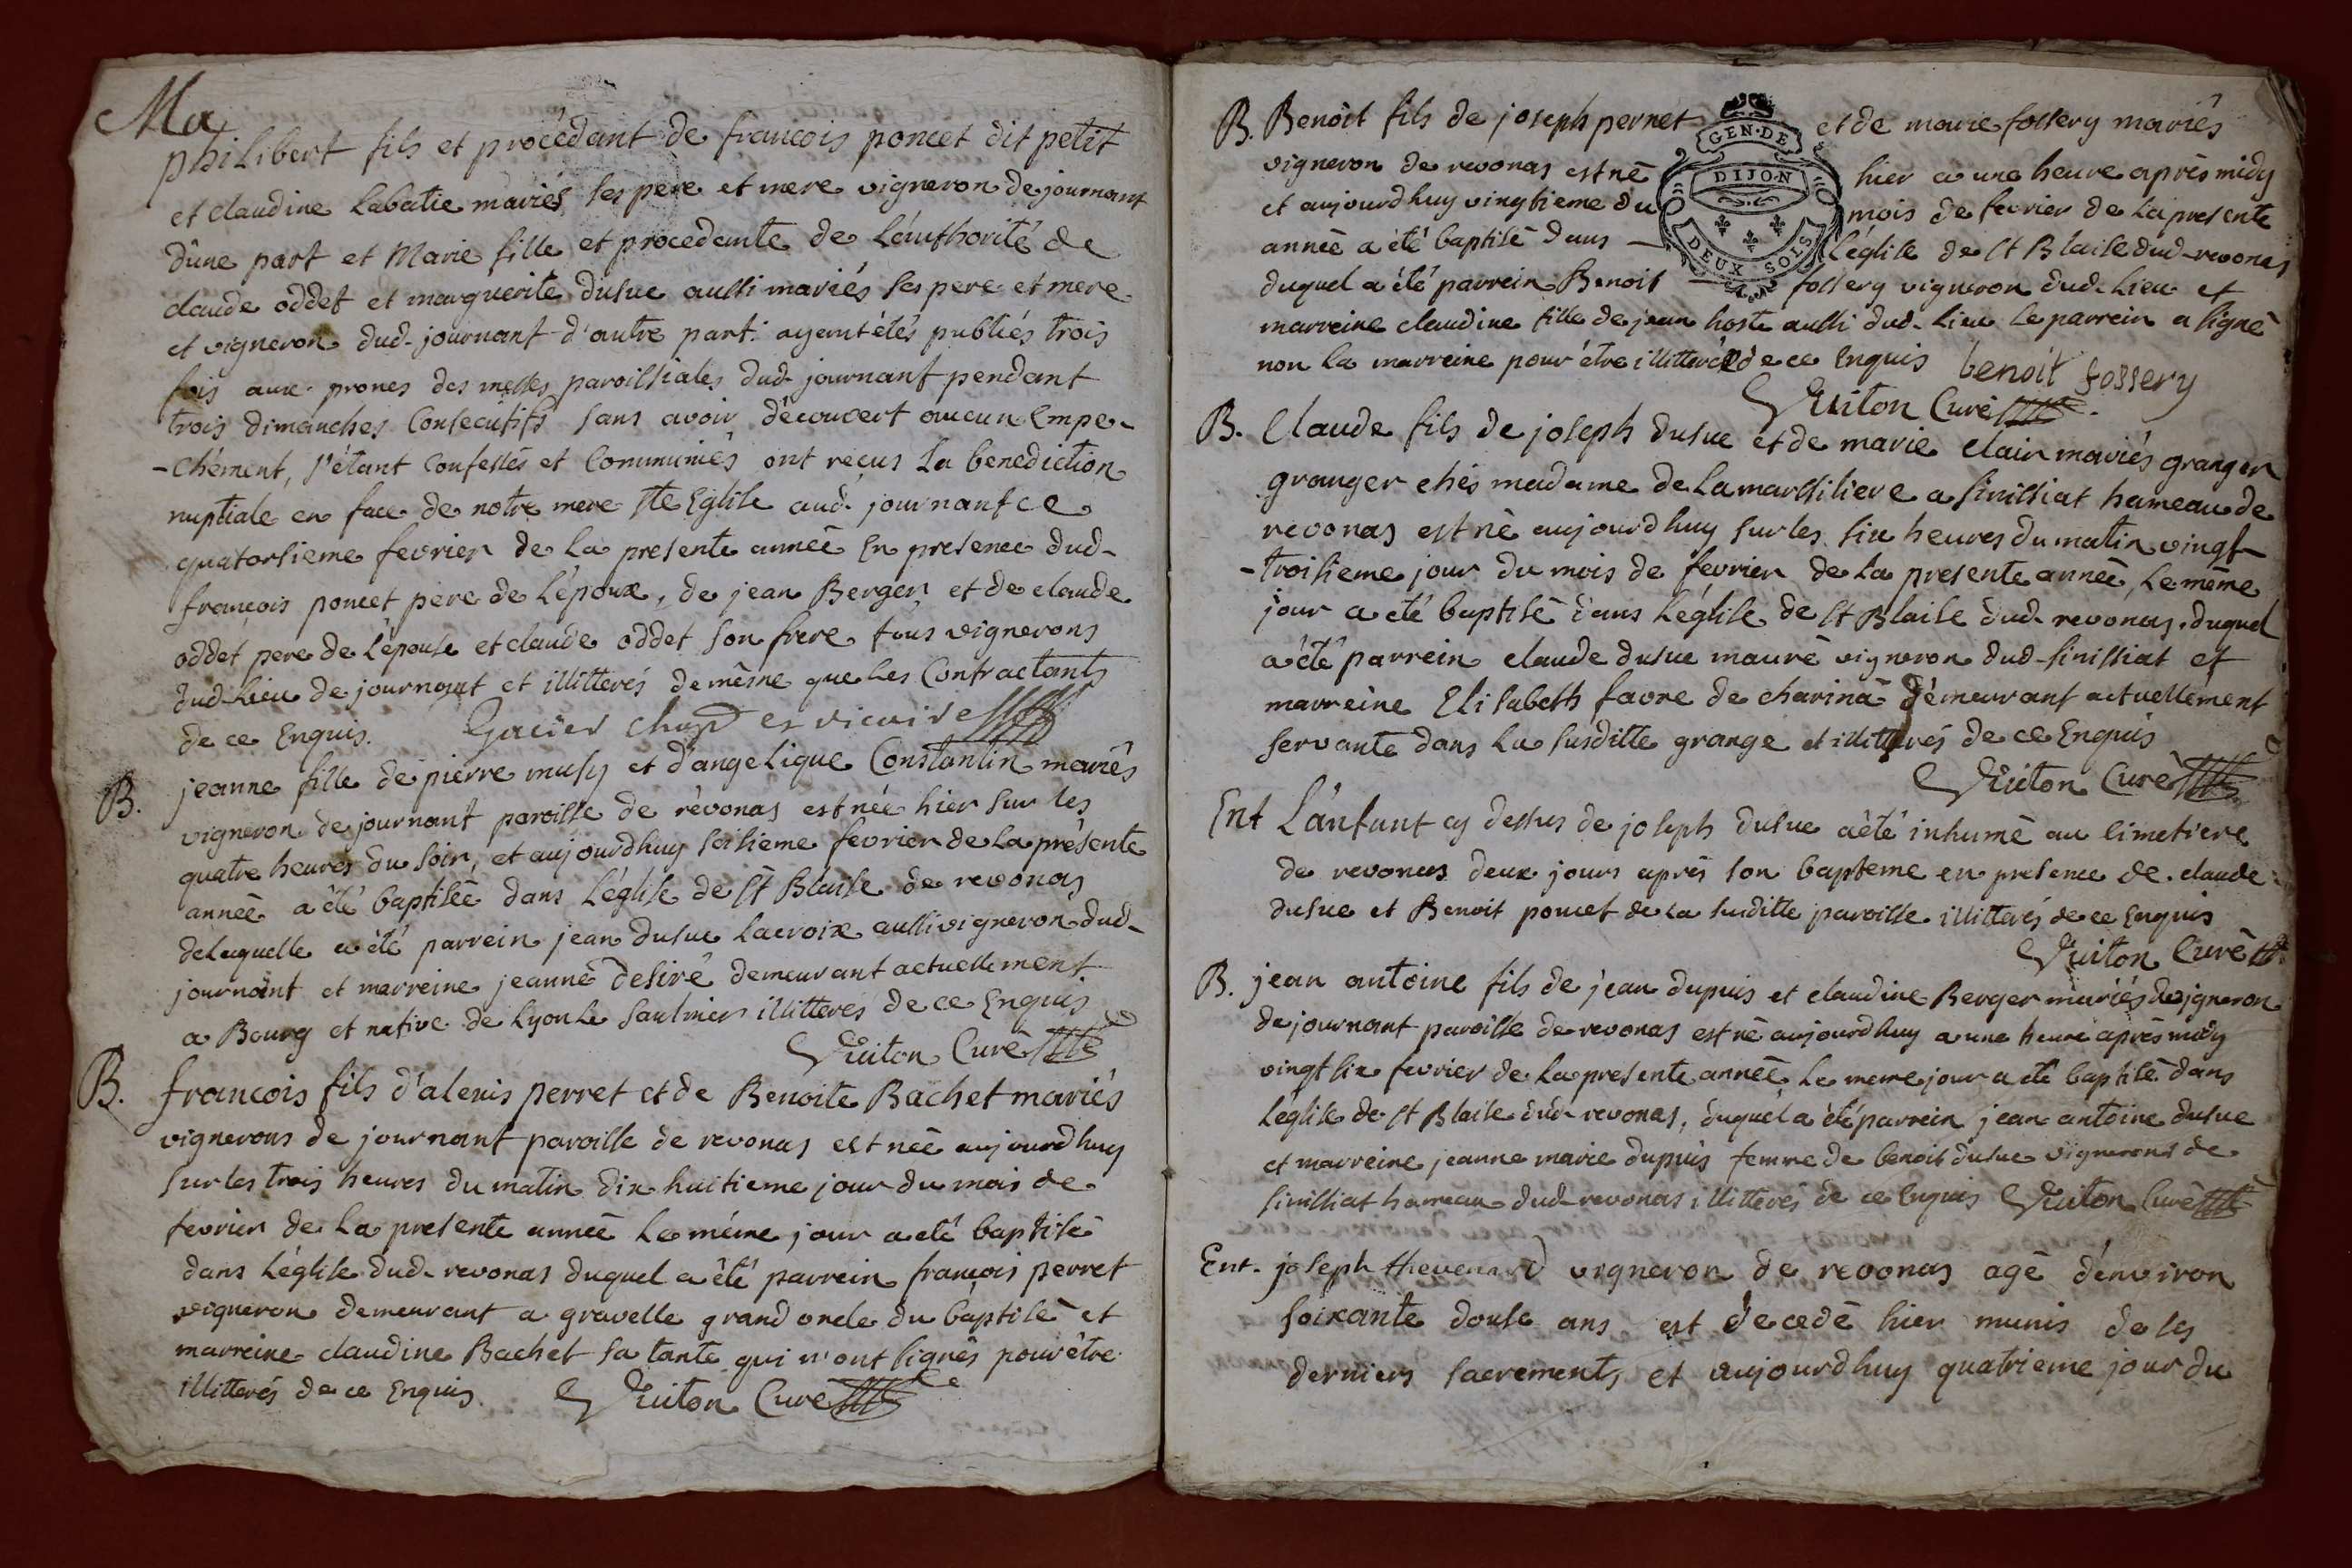 Ma
philibert fils et procédant de francois poncet dit petit
et claudine Labatie mariés ses pere et mere vigneron de journant
d'une part et Marie fille et procedante de L'authorité de
claude oddet et marguerite dusuc aussi mariés ses pere et mere
et vigneron dud. journant d'autre part. ayant étés publiés trois
fois aux prones des messes paroissiales dud. journant pendant
trois dimanches Consecutifs sans avoir découvert aucun Empe-
-chément, s'étant Confessés et Communiés ont recus La benediction
nuptiale en face de notre mere ste Eglise aud. journant ce
quatorsieme fevrier de La presente anneé En presence dud-
francois poncet pere de L'époux, de jean Berger et de claude
oddet pere de L'épouse et claude oddet son frere tous vignerons
dud. Lieu de journant et illitterés de même que Les Contractants
de ce Enquis. vicaire
B. jeanne fille de pierre musy et d'angelique Constantin mariés
vigneron de journant paroisse de révonas est née hier sur les
quatre heures du soir, et aujourdhuy seisieme fevrier de La présente
anneé a été baptiseé dans L'église de St Blaise de revonas
de Laquelle a été parrein jean dusuc Lacroix aussi vigneron dud-
journant et marreine jeanne desiré demeurant actuellement
a Bourg et native de Lyon Le saulnier illitteres de ce Enquis
Ruiton Curé
B. francois fils d'alexis perret et de Benoite Bachet mariés
vignerons de journant paroisse de revonas est neé aujourdhuy
sur les trois heures du matin dix huitieme jour du mois de
fevrier de La presente anneé Le même jour a eté baptisé
dans L'église dud. revonas duquel a été parrein francois perret
vigneron demeurant a gravelle grand oncle du baptisé et
marreine claudine Bachet sa tante qui n'ont signés pour être
illitterés de ce Enquis. Ruiton Curé
B. Benoit fils de joseph pernet et de marie fossery mariés
GEN·DE
vigneron de revonas est né hier a une heure après midy
DIJON
et aujourdhuy vingtieme du mois de fevrier de La presente
DEUX SOLS
anneé a été baptisé dans L'église de St Blaise dud. revonas
duquel a été parrein Benoit fossery vigneron dud. Lieu et
marreine claudine fille de jean hoste aussi dud. Lieu Le parrein a signé
non La marreine pour être illitteréé de ce Enquis benoit fossery
Ruiton Curé
B. Claude fils de joseph dusuc et de marie clair mariés granger
granger chés madame de Lamarssiliere a sinissiat hameau de
revonas est né aujourdhuy sur les six heures du matin vingt-
-troisieme jour du mois de fevrier de La presente anneé, Le même
jour a eté baptisé dans L'église de St Blaise dud. revonas. duquel
a été parrein claude dusuc mauré vigneron dud. sinissiat et
marreine Elisabeth favre de charina démeurant actuellement
servante dans La susditte grange et illitterés de ce Enquis
Ruiton Curé
Ent L'anfant cy dessus de joseph dusuc a été inhumé au cimetiere
de revonas deux jours aprés son bapteme en presence de claude
dusuc et Benoit poncet de La susditte paroisse illitterés de ce Enquis
Ruiton Curé
B. jean antoine fils de jean dupuis et claudine Berger mariés vigneron
de journant paroisse de revonas est né aujourdhuy a une heure après midy
vingt six fevrier de La presente anneé Le meme jour a eté baptisé dans
L'église de St Blaise dud. revonas, duquel a été parrein jean antoine dusuc
et marreine jeanne marie dupuis femme de benoit dusuc vignerons de
sinissiat hameau dud. revonas illitterés de ce Enquis Ruiton Curé
Ent. joseph thevenard vigneron de revonas agé d'environ
soixante douse ans est décedé hier munis de ses
derniers sacrements et aujourdhuy quatrieme jour du